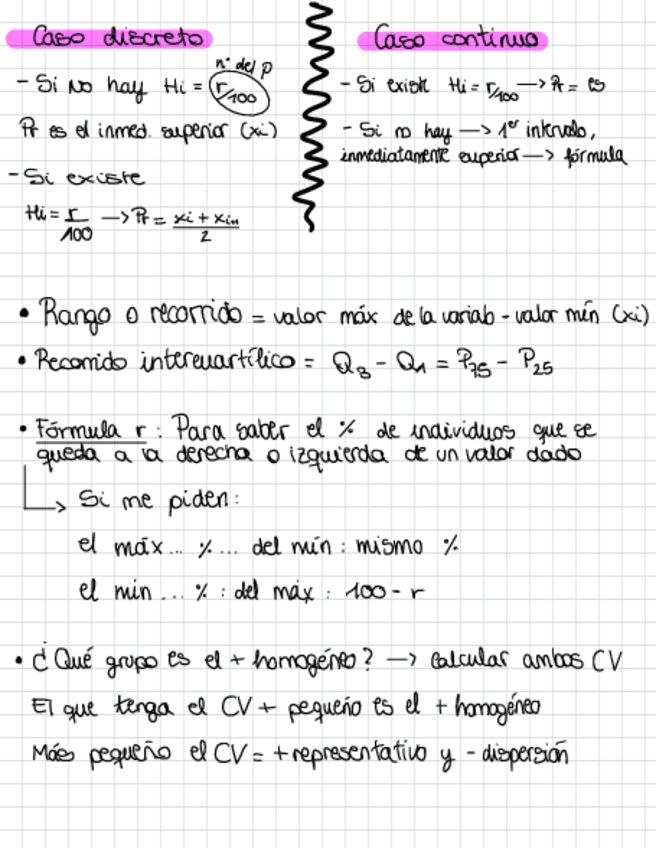 Caso discreto
- Si no hay Hi = r/100
nº del p
Pr es el inmed. superior (xi)
- Si existe
Hi = r/100 —> Pr = xi + xi+1 / 2
Caso continuo
- Si existe Hi = r/100 —> Pr = es
- Si no hay —> 1er intervalo,
inmediatamente superior —> fórmula
• Rango o recorrido = valor máx de la variab - valor mín (xi)
• Recorrido intercuartílico = Q3 - Q1 = P75 - P25
• Fórmula r : Para saber el % de individuos que se
queda a la derecha o izquierda de un valor dado
↳ Si me piden:
el máx... %... del mín : mismo %
el min ... % : del máx : 100 - r
• ¿Qué grupo es el + homogéneo? —> calcular ambos CV
El que tenga el CV + pequeño es el + homogéneo
Más pequeño el CV = + representativo y - dispersión